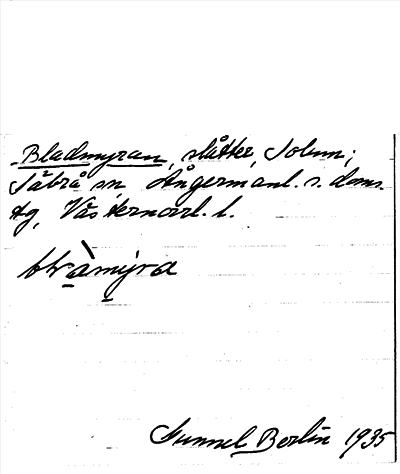 Bladmyran, slåtter, Jobun;
Säbrå sn, Ångermanl. s. doms.
tg, Västernorrl. l.
Gunnel Berlin 1935